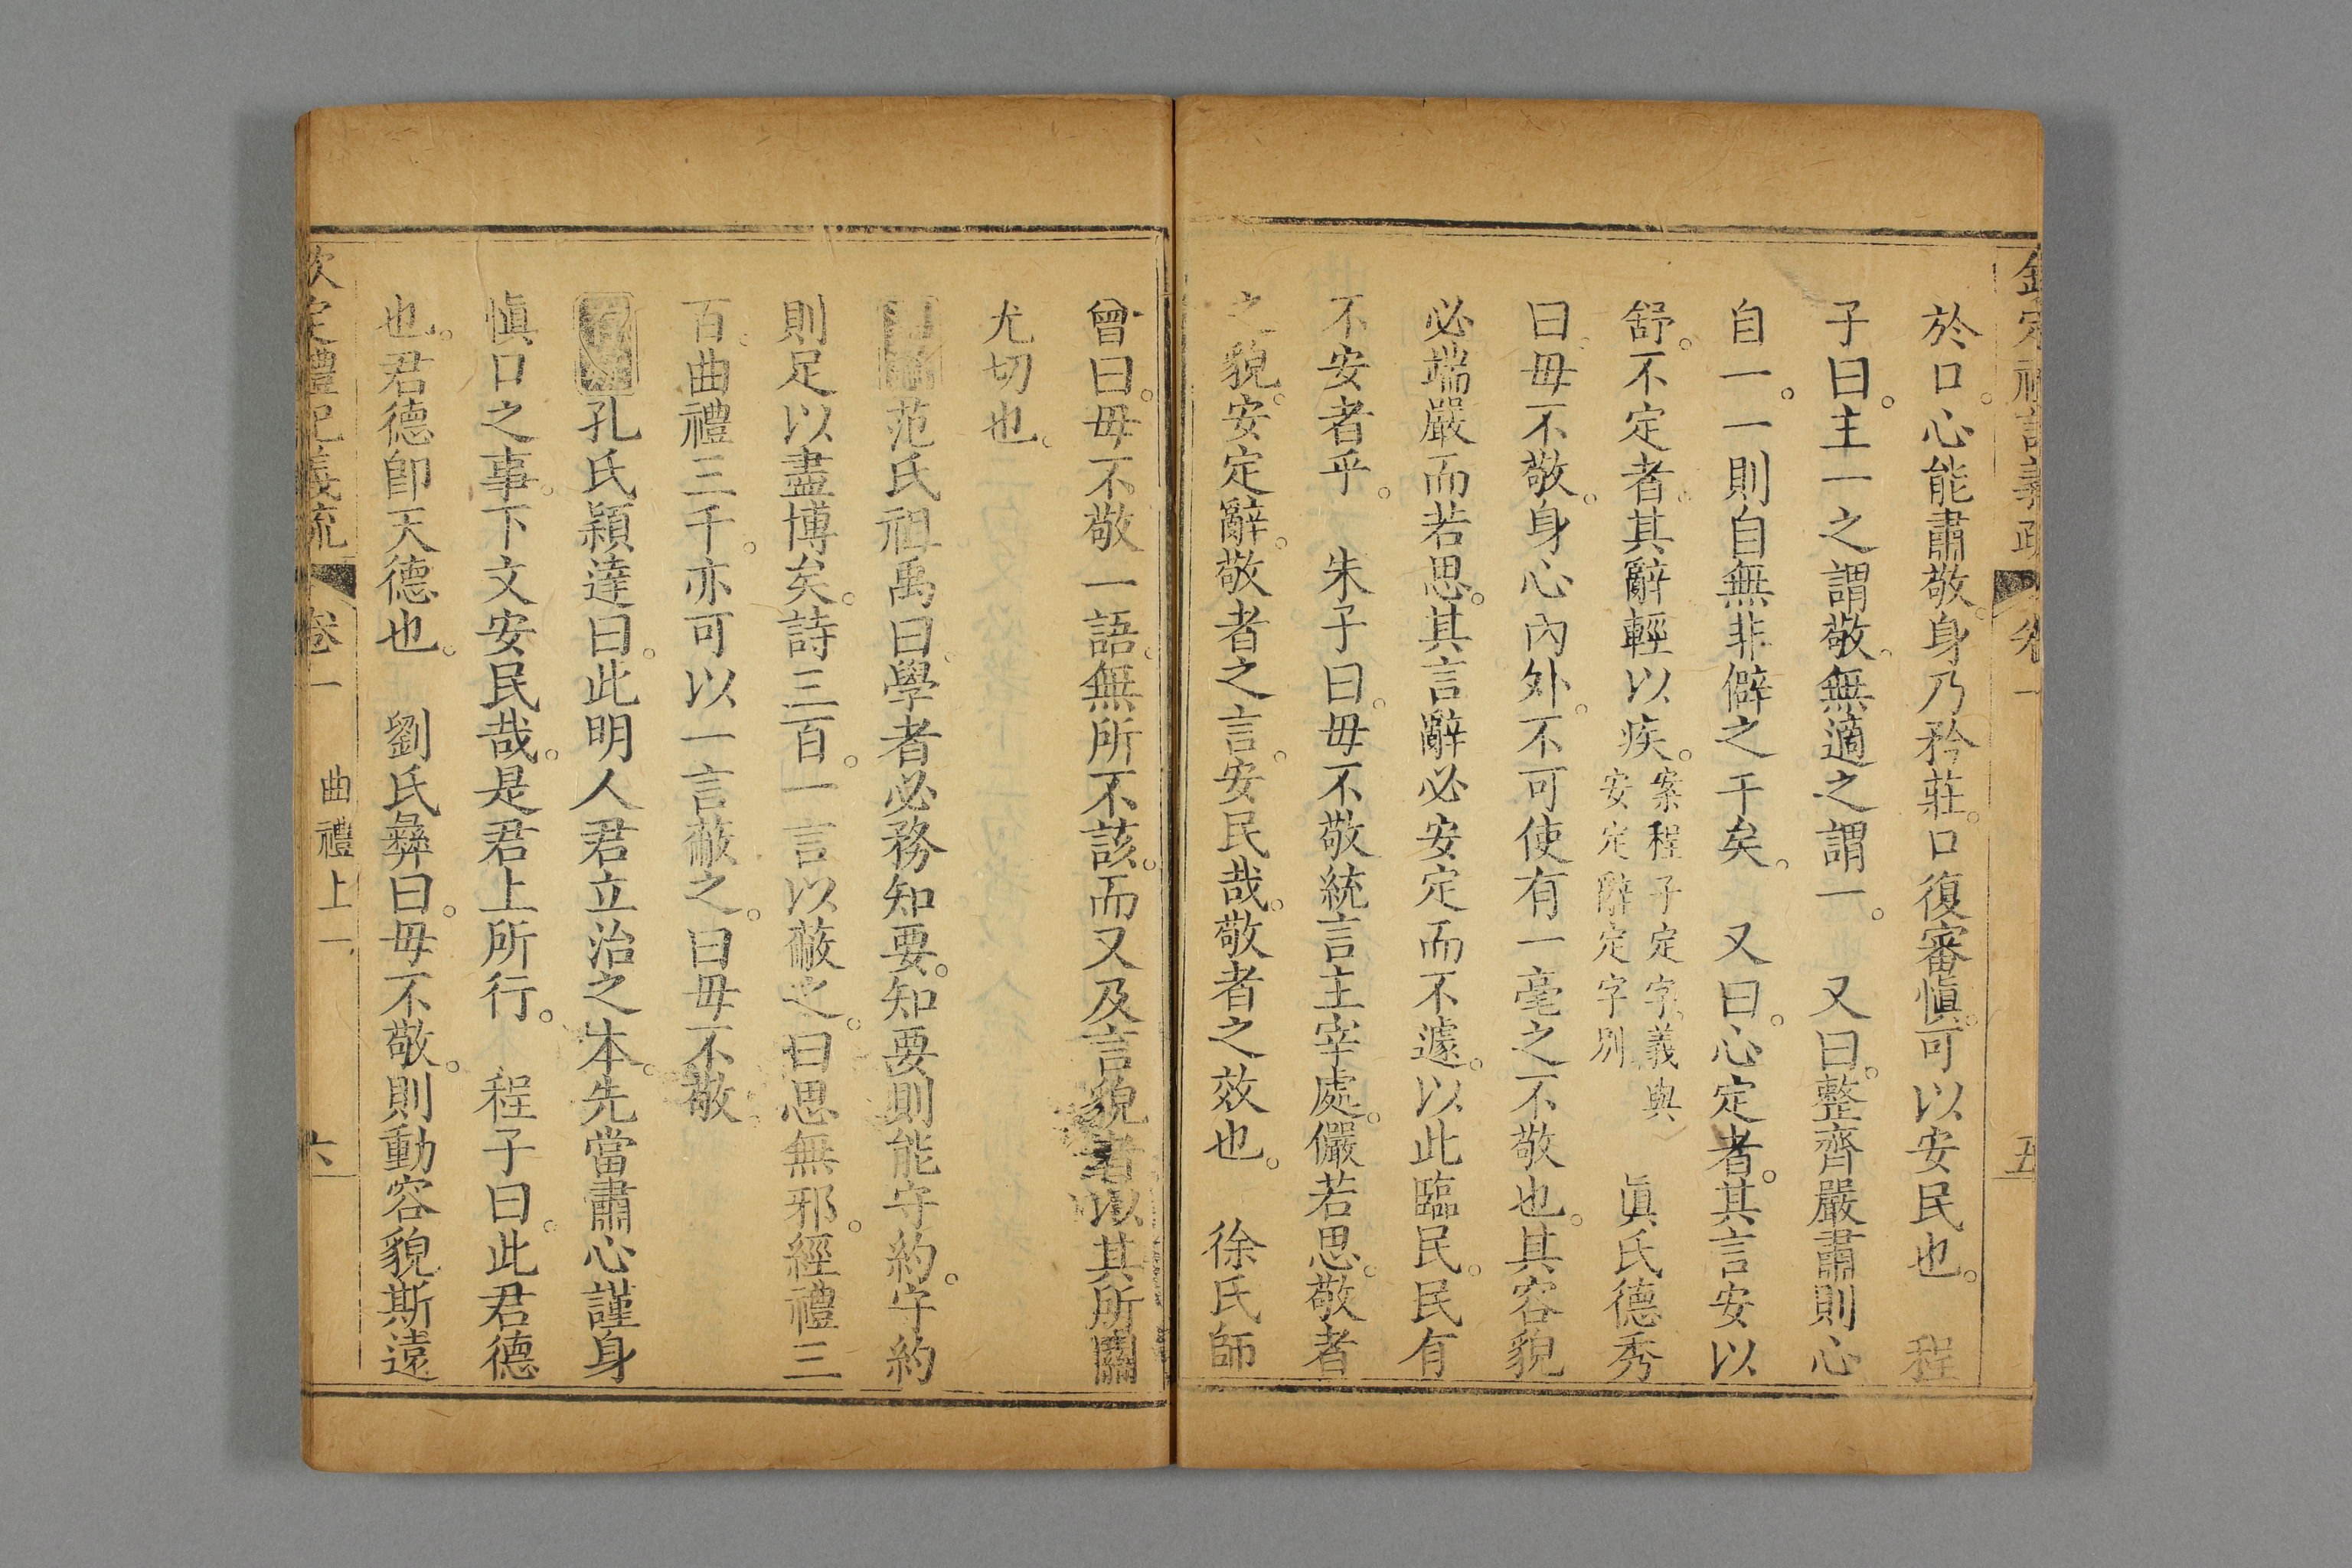 欽定禮記義疏 卷一 五
於口。心能肅敬。身乃矜莊。口復審愼。可以安民也。 程
子曰。主一之謂敬。無適之謂一。 又曰。整齊嚴肅則心
自一。一則自無非僻之干矣。 又曰。心定者。其言安以
舒。不定者。其辭輕以疾。案程子定字。義與安定辭定字別 眞氏德秀
曰。毋不敬。身心內外。不可使有一毫之不敬也。其容貌
必端嚴而若思。其言辭必安定而不遽。以此臨民。民有
不安者乎。 朱子曰。毋不敬統言主宰處。儼若思。敬者
之貌。安定辭。敬者之言。安民哉。敬者之效也。 徐氏師
曾曰。毋不敬一語。無所不該。而又及言貌者以其所關
尤切也。
范氏祖禹曰。學者必務知要。知要則能守約。守約
則足以盡博矣。詩三百。一言以蔽之。曰思無邪。經禮三
百。曲禮三千。亦可以一言蔽之。曰毋不敬。
孔氏穎達曰。此明人君立治之本。先當肅心謹身
愼口之事。下文安民哉。是君上所行。 程子曰。此君德
也。君德卽天德也。 劉氏彝曰。毋不敬。則動容貌斯遠
欽定禮記義疏 卷一 曲禮上一 六